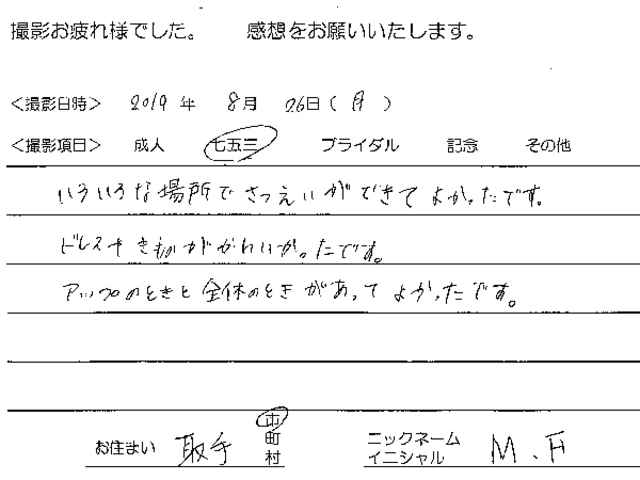 撮影お疲れ様でした。 感想をお願いいたします。
＜撮影日時＞ 2019 年 8月 26日（月）
＜撮影項目＞ 成人 七五三 ブライダル 記念 その他
いろいろな場所でさつえいができてよかったです。
ドレスやきものがかわいかったです。
アップのときと全体のときがあってよかったです。
お住まい 取手 市 町 村 ニックネーム イニシャル M.F